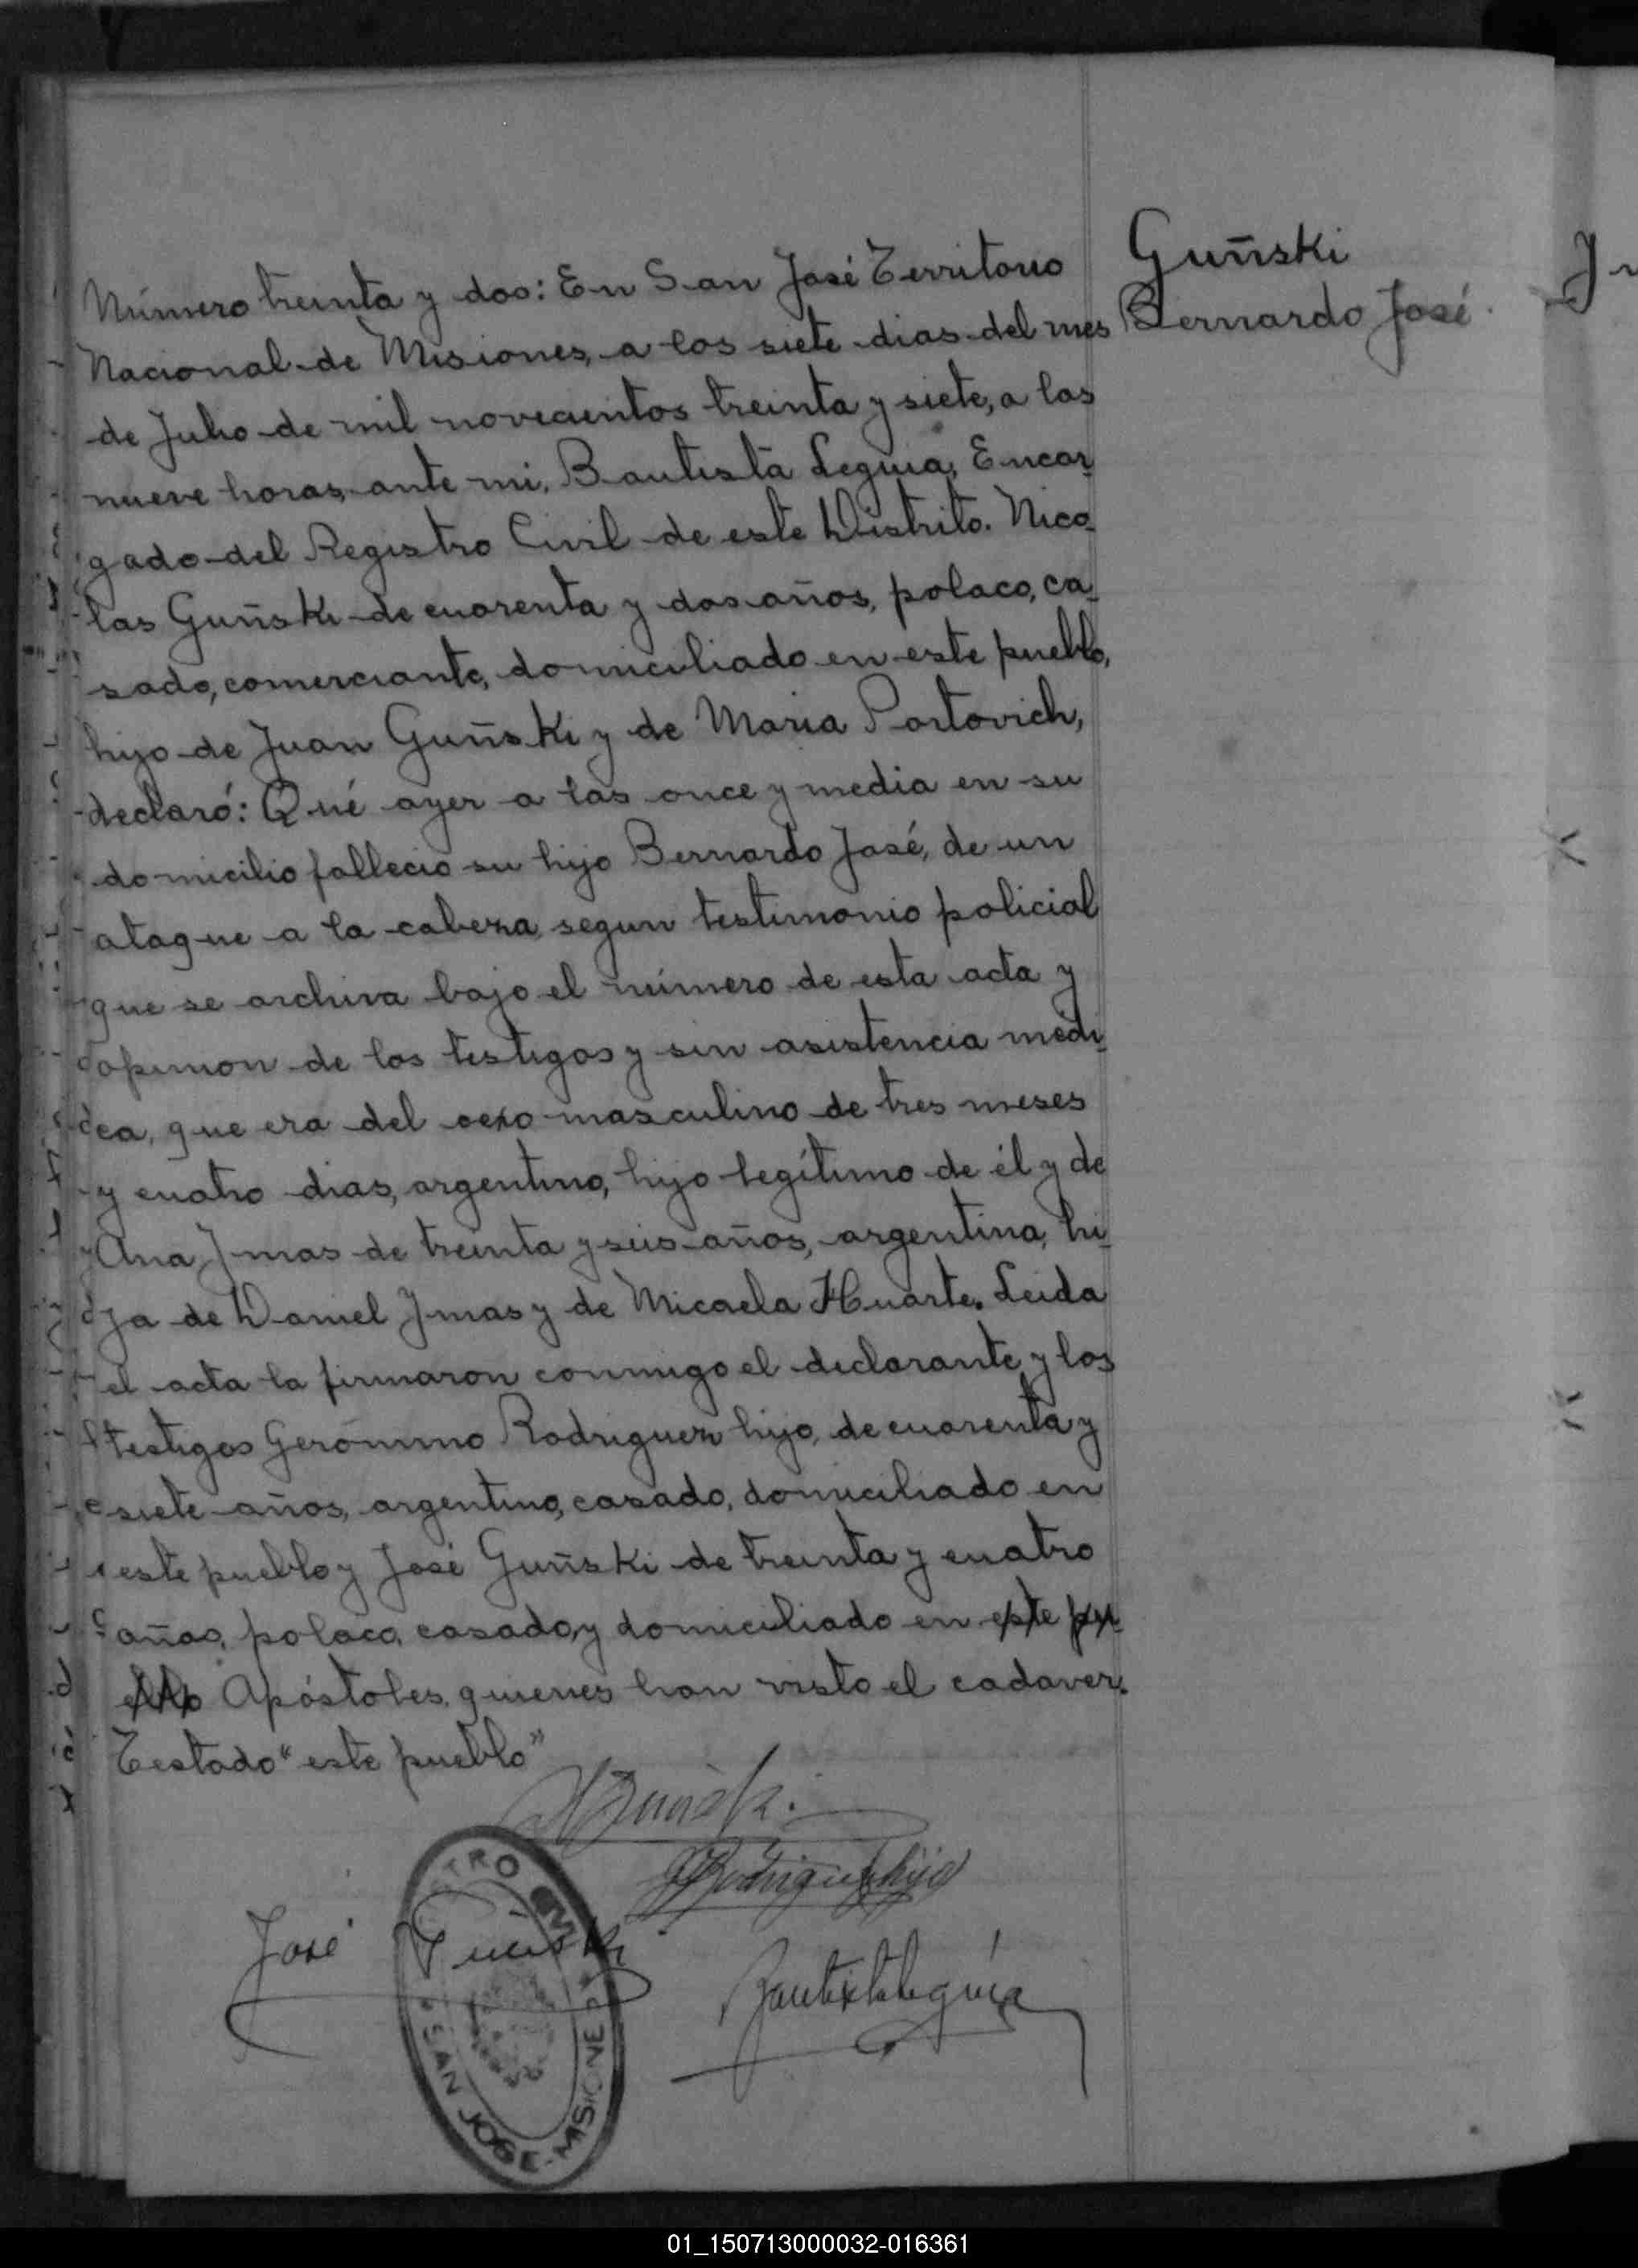 Guñski
Bernardo José
Número treinta y dos: En San José Territorio
Nacional de Misiones, a los siete dias del mes
de Julio de mil novecientos treinta y siete, a las
nueve horas, ante mi, Bautista Leguia, Encar
gado del Registro Civil de este Distrito. Nico
las Guñski de cuarenta y dos años, polaco, ca
sado, comerciante, domiciliado en este pueblo,
hijo de Juan Guñski y de Maria Portovich,
declaró: Qué ayer a las once y media en su
domicilio fallecio su hijo Bernardo José, de un
ataque a la cabeza, segun testimonio policial
que se archiva bajo el número de esta acta y
opinion de los testigos y sin asistencia medi
ca, que era del sexo masculino de tres meses
y cuatro dias, argentino, hijo legítimo de él y de
Ana Imas de treinta y seis años, argentina, hi
ja de Daniel Imas y de Micaela Huarte. Leida
el acta la firmaron conmigo el declarante y los
testigos Gerónimo Rodriguez hijo, de cuarenta y
siete años, argentino, casado, domiciliado en
este pueblo y José Guñski de treinta y cuatro
años, polaco, casado, y domiciliado en este pu
eblo Apóstoles, quienes han visto el cadaver.
Testado "este pueblo"
N Guñski.
G Rodriguez hijo
José Guñski
Bautista Leguia
TRO CIVI
SAN JOSE - MISIONE
01_150713000032-016361